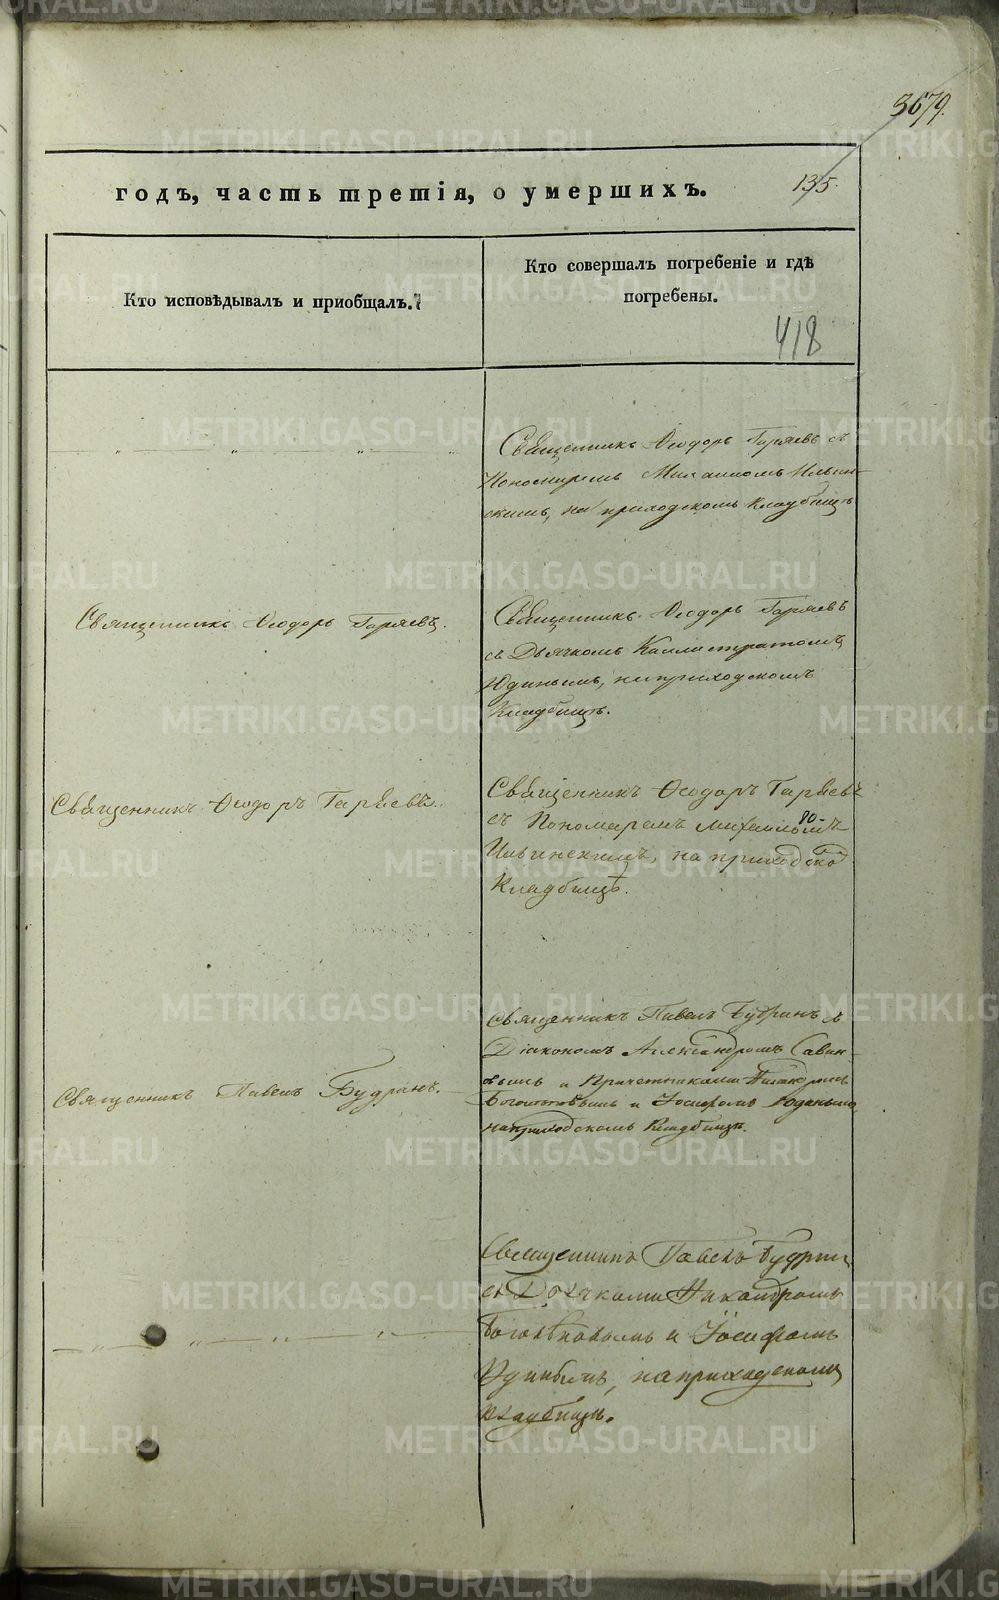 3679.
135.
годъ, часть третія, о умершихъ.
Кто исповѣдывалъ и приобщалъ.
Кто совершалъ погребеніе и гдѣ
погребены.
418
Священникъ Ѳеодоръ Гаряевъ съ
Пономаремъ Михаиломъ Ильин-
скимъ, на приходскомъ кладбищѣ
Священникъ Ѳеодоръ Гаряевъ.
Священникъ Ѳеодоръ Гаряевъ
съ Дьячкомъ Каллистратомъ
Юдинымъ, на приходскомъ
кладбищѣ.
Священникъ Ѳеодоръ Гаряевъ.
Священникъ Ѳеодоръ Гаряевъ
съ Пономаремъ Михаиломъ
Ильинскимъ, на приходско
Кладбищѣ.
Священникъ Павелъ Будринъ.
Священникъ Павелъ Будринъ съ
Діакономъ Александромъ Савин-
овымъ и Причетниками
и Іосифомъ Юдинымъ
на приходскомъ Кладбищѣ.
Священникъ Павелъ Будрин
съ Дьячками Никандромъ
и Іосифомъ
на приходскомъ
кладбищѣ.
METRIKI.GASO-URAL.RU